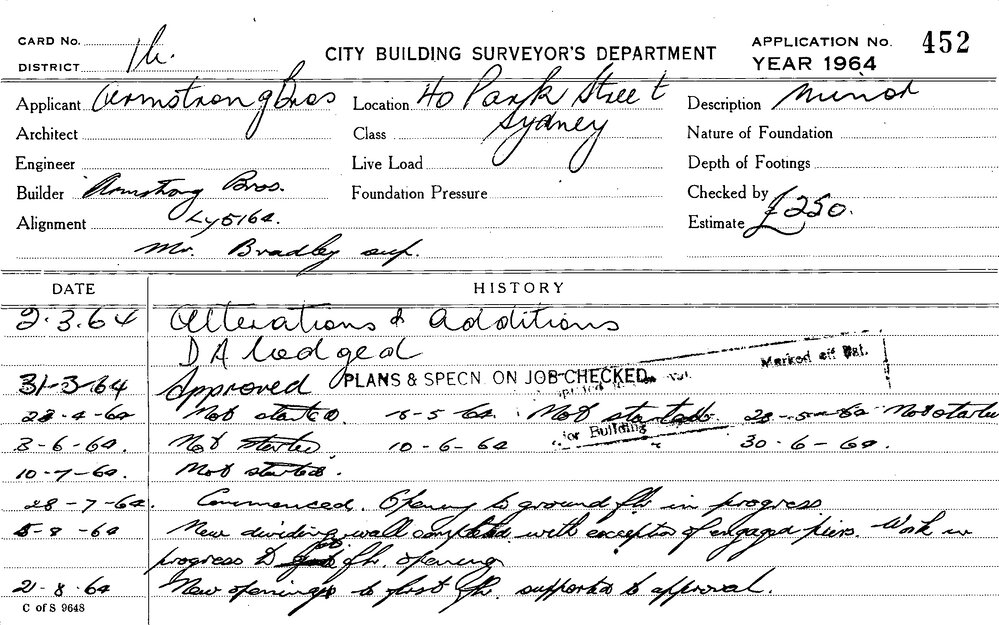 CARD No.
DISTRICT
CITY BUILDING SURVEYOR'S DEPARTMENT
APPLICATION No. 452
YEAR 1964
Applicant Armstrong Bros Location 40 Park Street Sydney Description Minor
Architect Class Nature of Foundation
Engineer Live Load Depth of Footings
Builder Armstrong Bros. Foundation Pressure Checked by
Alignment Ly5164. Estimate £250.
Mr. Bradley sup.
DATE HISTORY
2.3.64 Alterations & Additions
D A lodged
Marked off Bat.
31-3-64 Approved PLANS & SPECN. ON JOB CHECKED
28-4-64 Not started. 15-5-64. Not started. 28-5-64 Not starte
for Building
3-6-64. Not started. 10-6-64 " 30-6-64.
10-7-64. Not started.
28-7-64. Commenced. Opening to ground flr in progress
5-8-64 New dividing wall completed with exception of engaged piers. Work in
progress to flr. opening
21-8-64 New openings to first flr. supported to approval.
C of S 9648